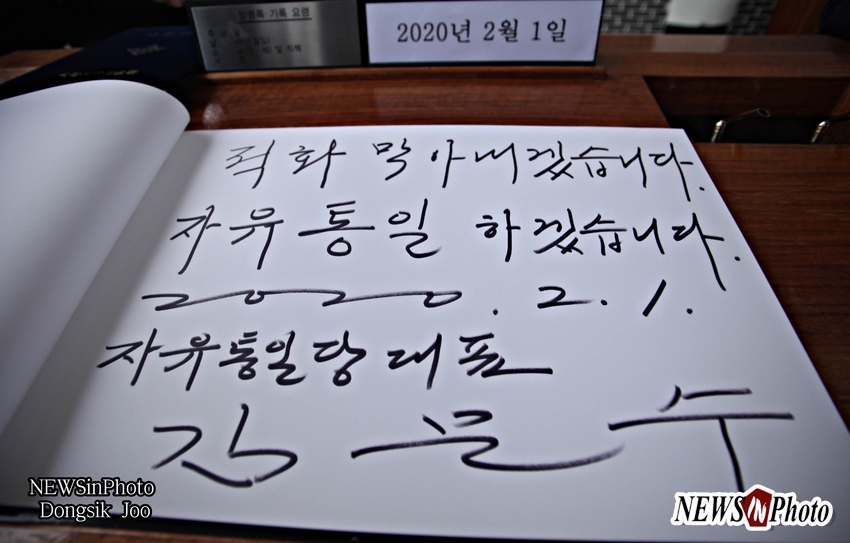 방명록 기록 요령
2020년 2월 1일
적화 막아내겠습니다.
자유통일 하겠습니다.
2020. 2. 1.
자유통일당 대표
김문수
NEWSinPhoto
Dongsik Joo
NEWSiNPhoto